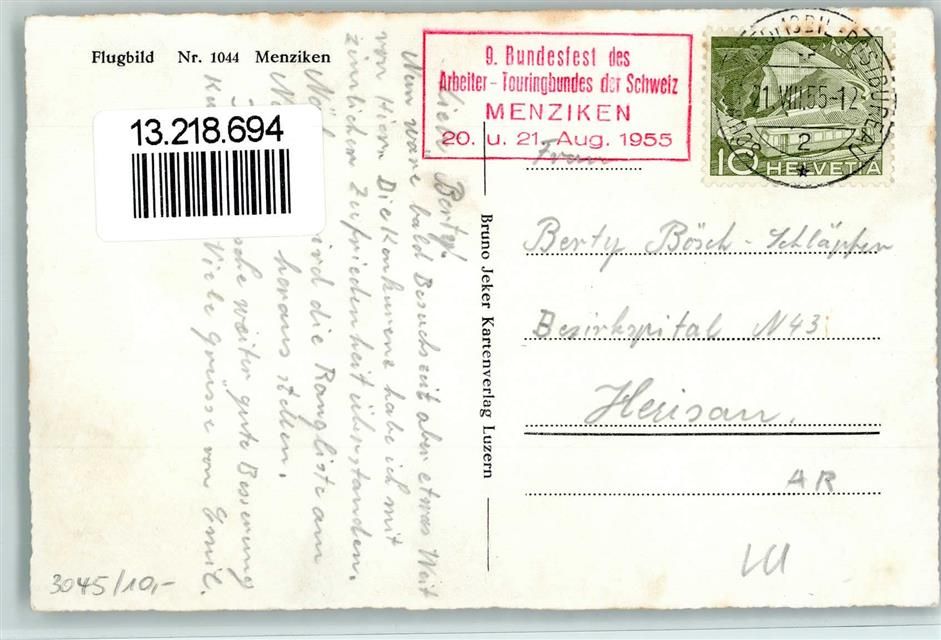 Flugbild Nr. 1044 Menziken
13.218.694
9. Bundesfest des
Arbeiter-Touringbundes der Schweiz
MENZIKEN
20. u. 21. Aug. 1955
21.VIII.55-12
2
10 HELVETIA
Liebe Berty!
Nun wäre bald Besuchszeit aber etwas Weit
von Hier. Die Konkurrenz habe ich mit
zimlicher Zufriedenheit überstanden.
wird die Rangliste am
heraus stellen.
weiter gute Besserung
Viele Grüsse von Emil.
Bruno Jeker Kartenverlag Luzern
Frau
Berty Bösch-Schläpfer
Bezirkspital N43
Herisau.
AR
3045/10,-